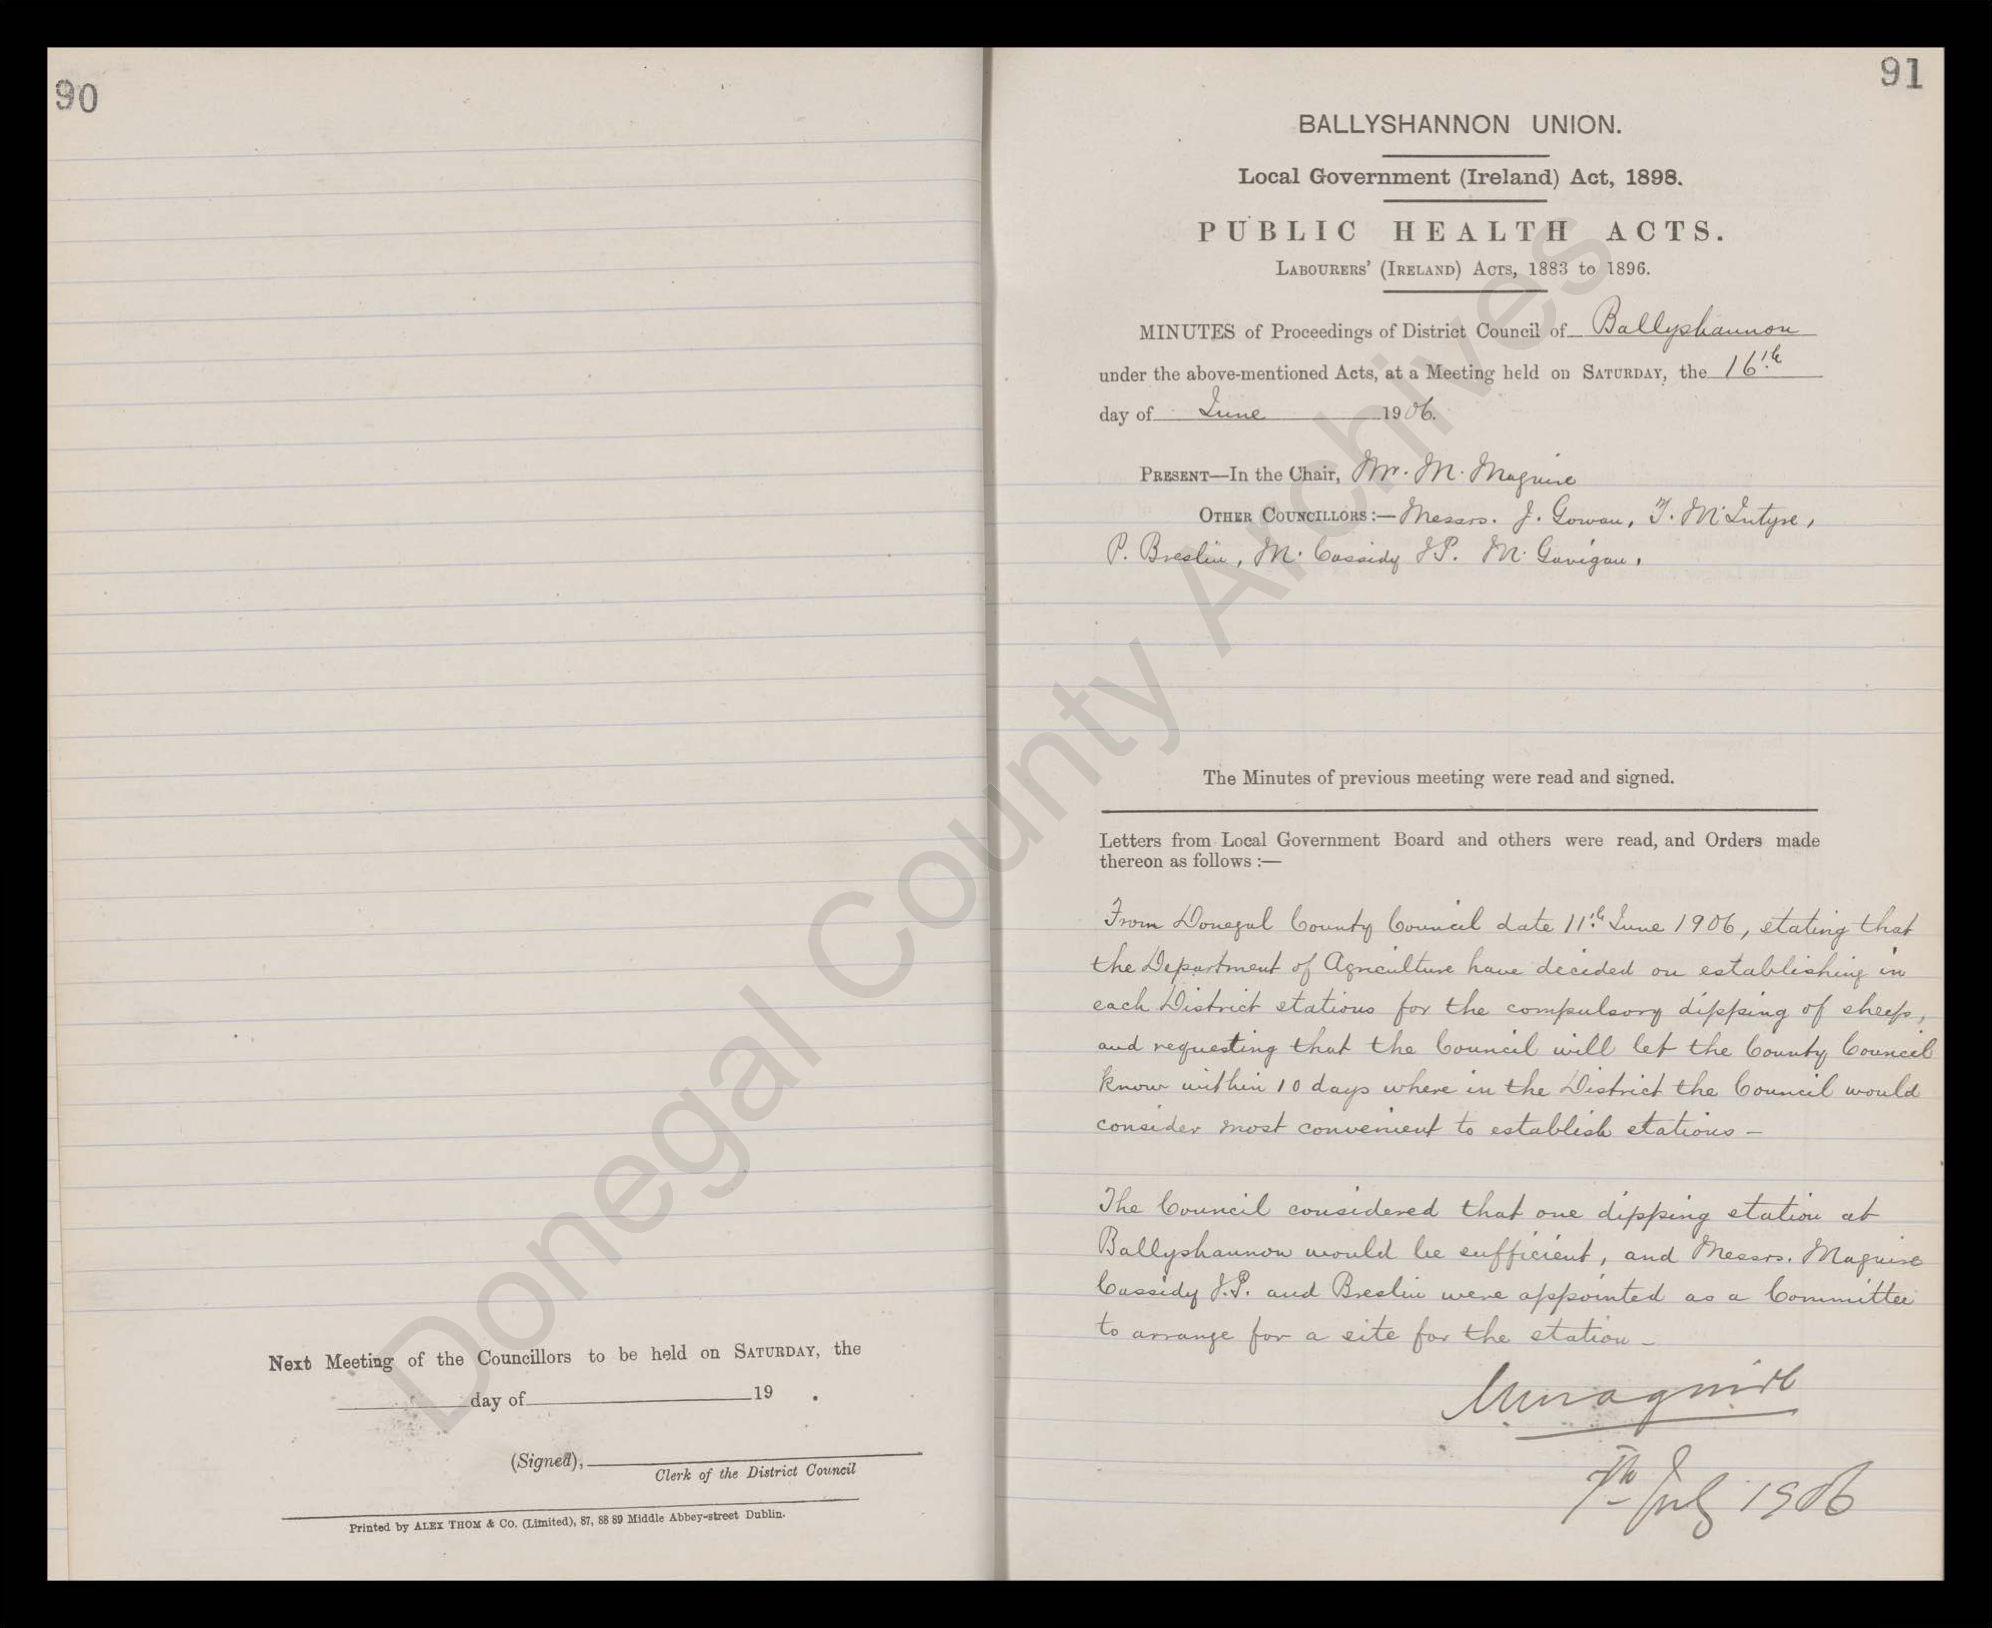 90
Next Meeting of the Councillors to be held on SATURDAY, the
day of 19 .
(Signed),
Clerk of the District Council
Printed by ALEX THOM & Co. (Limited), 87, 88 89 Middle Abbey-street Dublin.
91
BALLYSHANNON UNION.
Local Government (Ireland) Act, 1898.
PUBLIC HEALTH ACTS.
LABOURERS' (IRELAND) ACTS, 1883 to 1896.
MINUTES of Proceedings of District Council of Ballyshannon
under the above-mentioned Acts, at a Meeting held on SATURDAY, the 16th
day of June 1906.
PRESENT—In the Chair, Mr. M. Maguire
OTHER COUNCILLORS:— Messrs. J. Gowan, T. McIntyre,
P. Breslin, M. Cassidy J.P. M. Gavigan.
The Minutes of previous meeting were read and signed.
Letters from Local Government Board and others were read, and Orders made
thereon as follows :—
From Donegal County Council date 11th June 1906, stating that
the Department of Agriculture have decided on establishing in
each District stations for the compulsory dipping of sheep,
and requesting that the Council will let the County Council
know within 10 days where in the District the Council would
consider most convenient to establish stations —
The Council considered that one dipping station at
Ballyshannon would be sufficient, and Messrs. Maguire
Cassidy J.P. and Breslin were appointed as a Committee
to arrange for a site for the station —
M Maguire
7th July 1906
Donegal County Archives